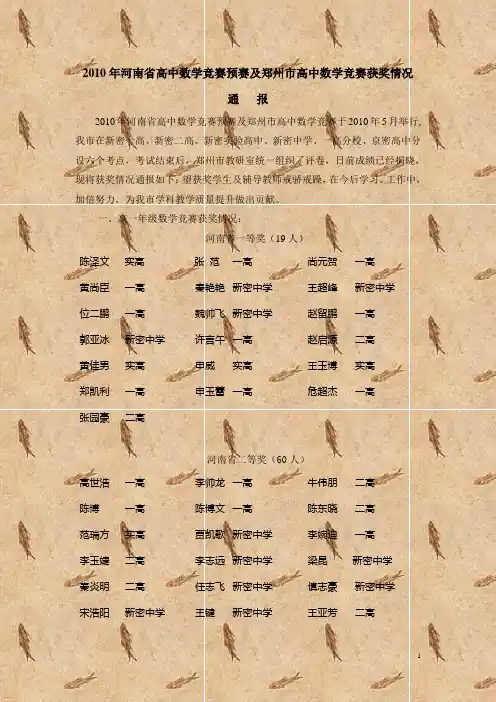 2010年河南省高中数学竞赛预赛及郑州市高中数学竞赛获奖情况
通 报
2010年河南省高中数学竞赛预赛及郑州市高中数学竞赛于2010年5月举行,
我市在新密一高、新密二高、新密实验高中、新密中学、一高分校、京密高中分
设六个考点。考试结束后,郑州市教研室统一组织了评卷,日前成绩已经揭晓,
现将获奖情况通报如下,望获奖学生及辅导教师戒骄戒躁,在今后学习、工作中,
加倍努力,为我市学科教学质量提升做出贡献。
一、高一年级数学竞赛获奖情况:
河南省一等奖(19人)
陈泽文 实高 张 范 一高 尚元贺 一高
黄尚臣 一高 秦艳艳 新密中学 王超峰 新密中学
位二鹏 一高 魏帅飞 新密中学 赵留鹏 一高
郭亚冰 新密中学 许言午 一高 赵启源 二高
黄佳男 实高 申威 实高 王玉博 实高
郑凯利 一高 申玉蕾 一高 危超杰 一高
张园豪 二高
河南省二等奖(60人)
高世浩 一高 李帅龙 一高 牛伟朋 二高
陈博 一高 陈博文 一高 陈东晓 二高
范瑞方 实高 贾凯歌 新密中学 李婉迪 一高
李玉婕 二高 李志远 新密中学 梁昆 新密中学
秦炎明 二高 任志飞 新密中学 慎志豪 新密中学
宋浩阳 新密中学 王键 新密中学 王亚芳 二高
1